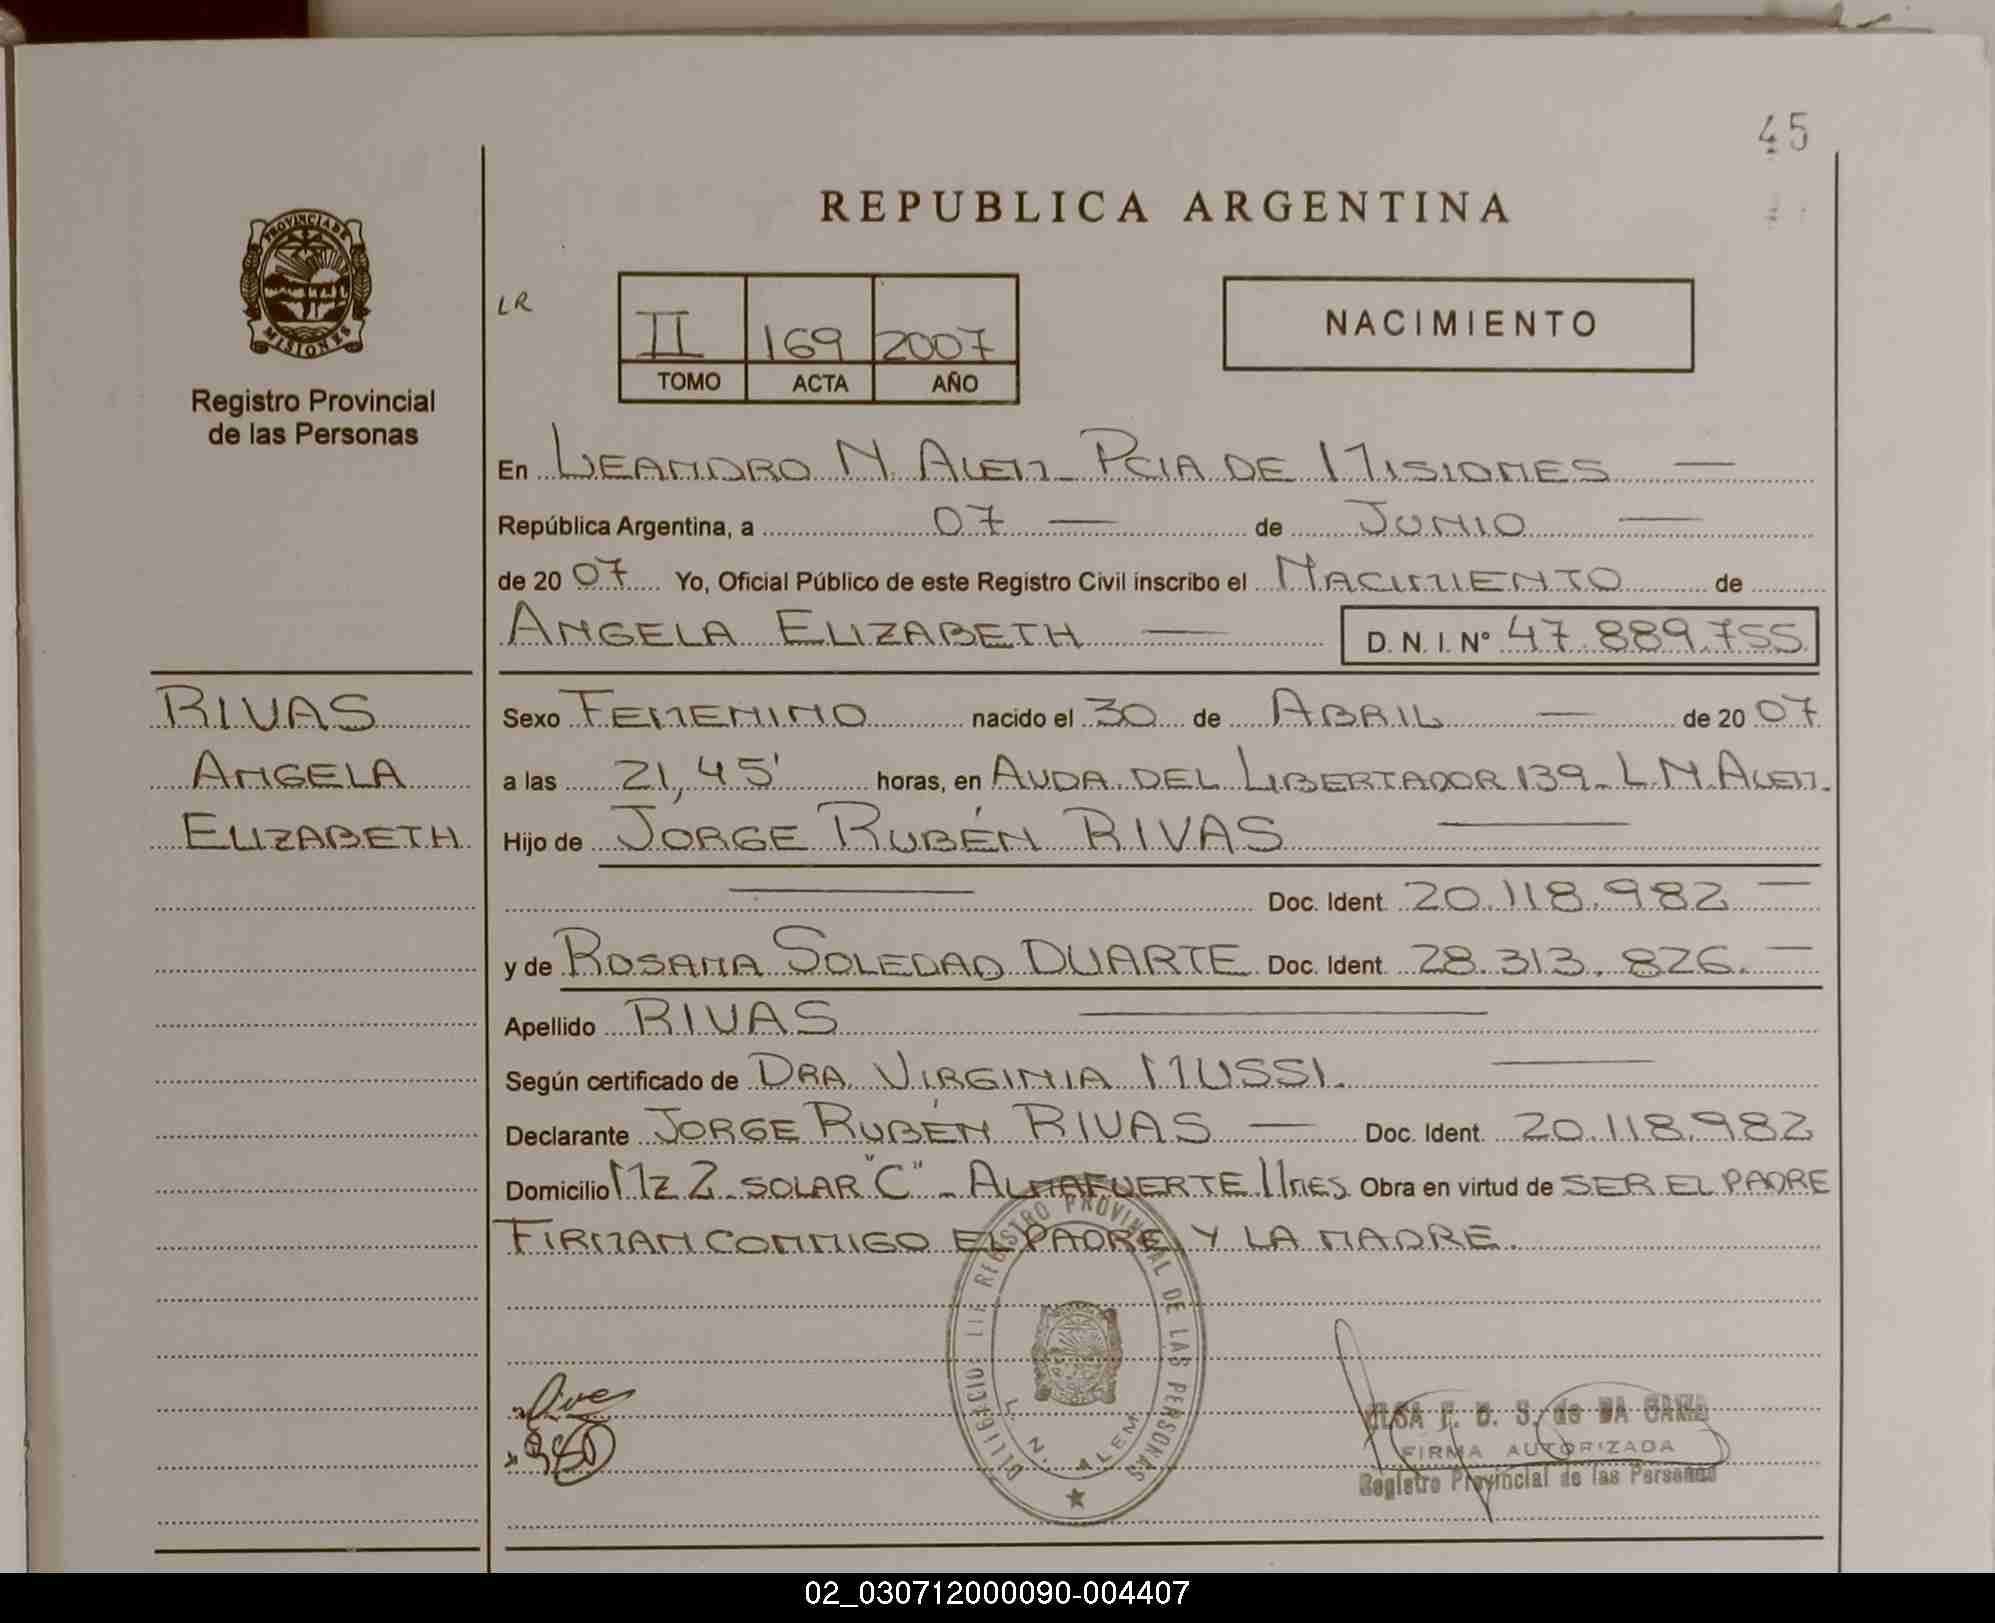 45
REPUBLICA ARGENTINA
PROVINCIA DE
MISIONES
Registro Provincial
de las Personas
LR
II 169 2007
TOMO ACTA AÑO
NACIMIENTO
En LEANDRO N. ALEM - PCIA DE MISIONES —
República Argentina, a 07 — de JUNIO —
de 20 07 Yo, Oficial Público de este Registro Civil inscribo el NACIMIENTO de
ANGELA ELIZABETH — D. N. I. N° 47.889.755
RIVAS
ANGELA
ELIZABETH
Sexo FEMENINO nacido el 30 de ABRIL — de 20 07
a las 21,45' horas, en AVDA. DEL LIBERTADOR 139 - L.N. ALEM.
Hijo de JORGE RUBÉN RIVAS —
— Doc. Ident. 20.118.982 —
y de ROSANA SOLEDAD DUARTE Doc. Ident. 28.313.826. —
Apellido RIVAS —
Según certificado de DRA. VIRGINIA MUSSI. —
Declarante JORGE RUBÉN RIVAS — Doc. Ident. 20.118.982
Domicilio MZ 2 - SOLAR "C" - ALMAFUERTE Mnes. Obra en virtud de SER EL PADRE
FIRMAN CONMIGO EL PADRE Y LA MADRE.
REGISTRO PROVINCIAL DE LAS PERSONAS
L. N. ALEM
FIRMA AUTORIZADA
Registro Provincial de las Personas
02_030712000090-004407